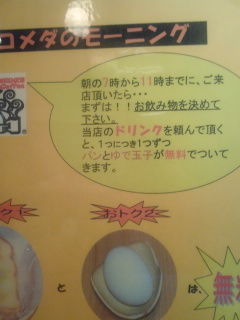 コメダのモーニング
朝の7時から11時までに、ご来
店頂いたら・・・
まずは！！お飲み物を決めて
下さい。
当店のドリンクを頼んで頂く
と、1つにつき1つずつ
パンとゆで玉子が無料でついて
きます。
おトク2
と
は、無